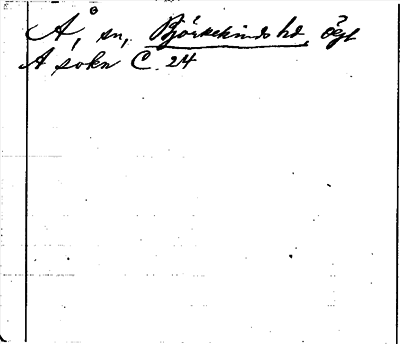 Å, sn, Björkekinds hd, Ögl
A sokn C. 24